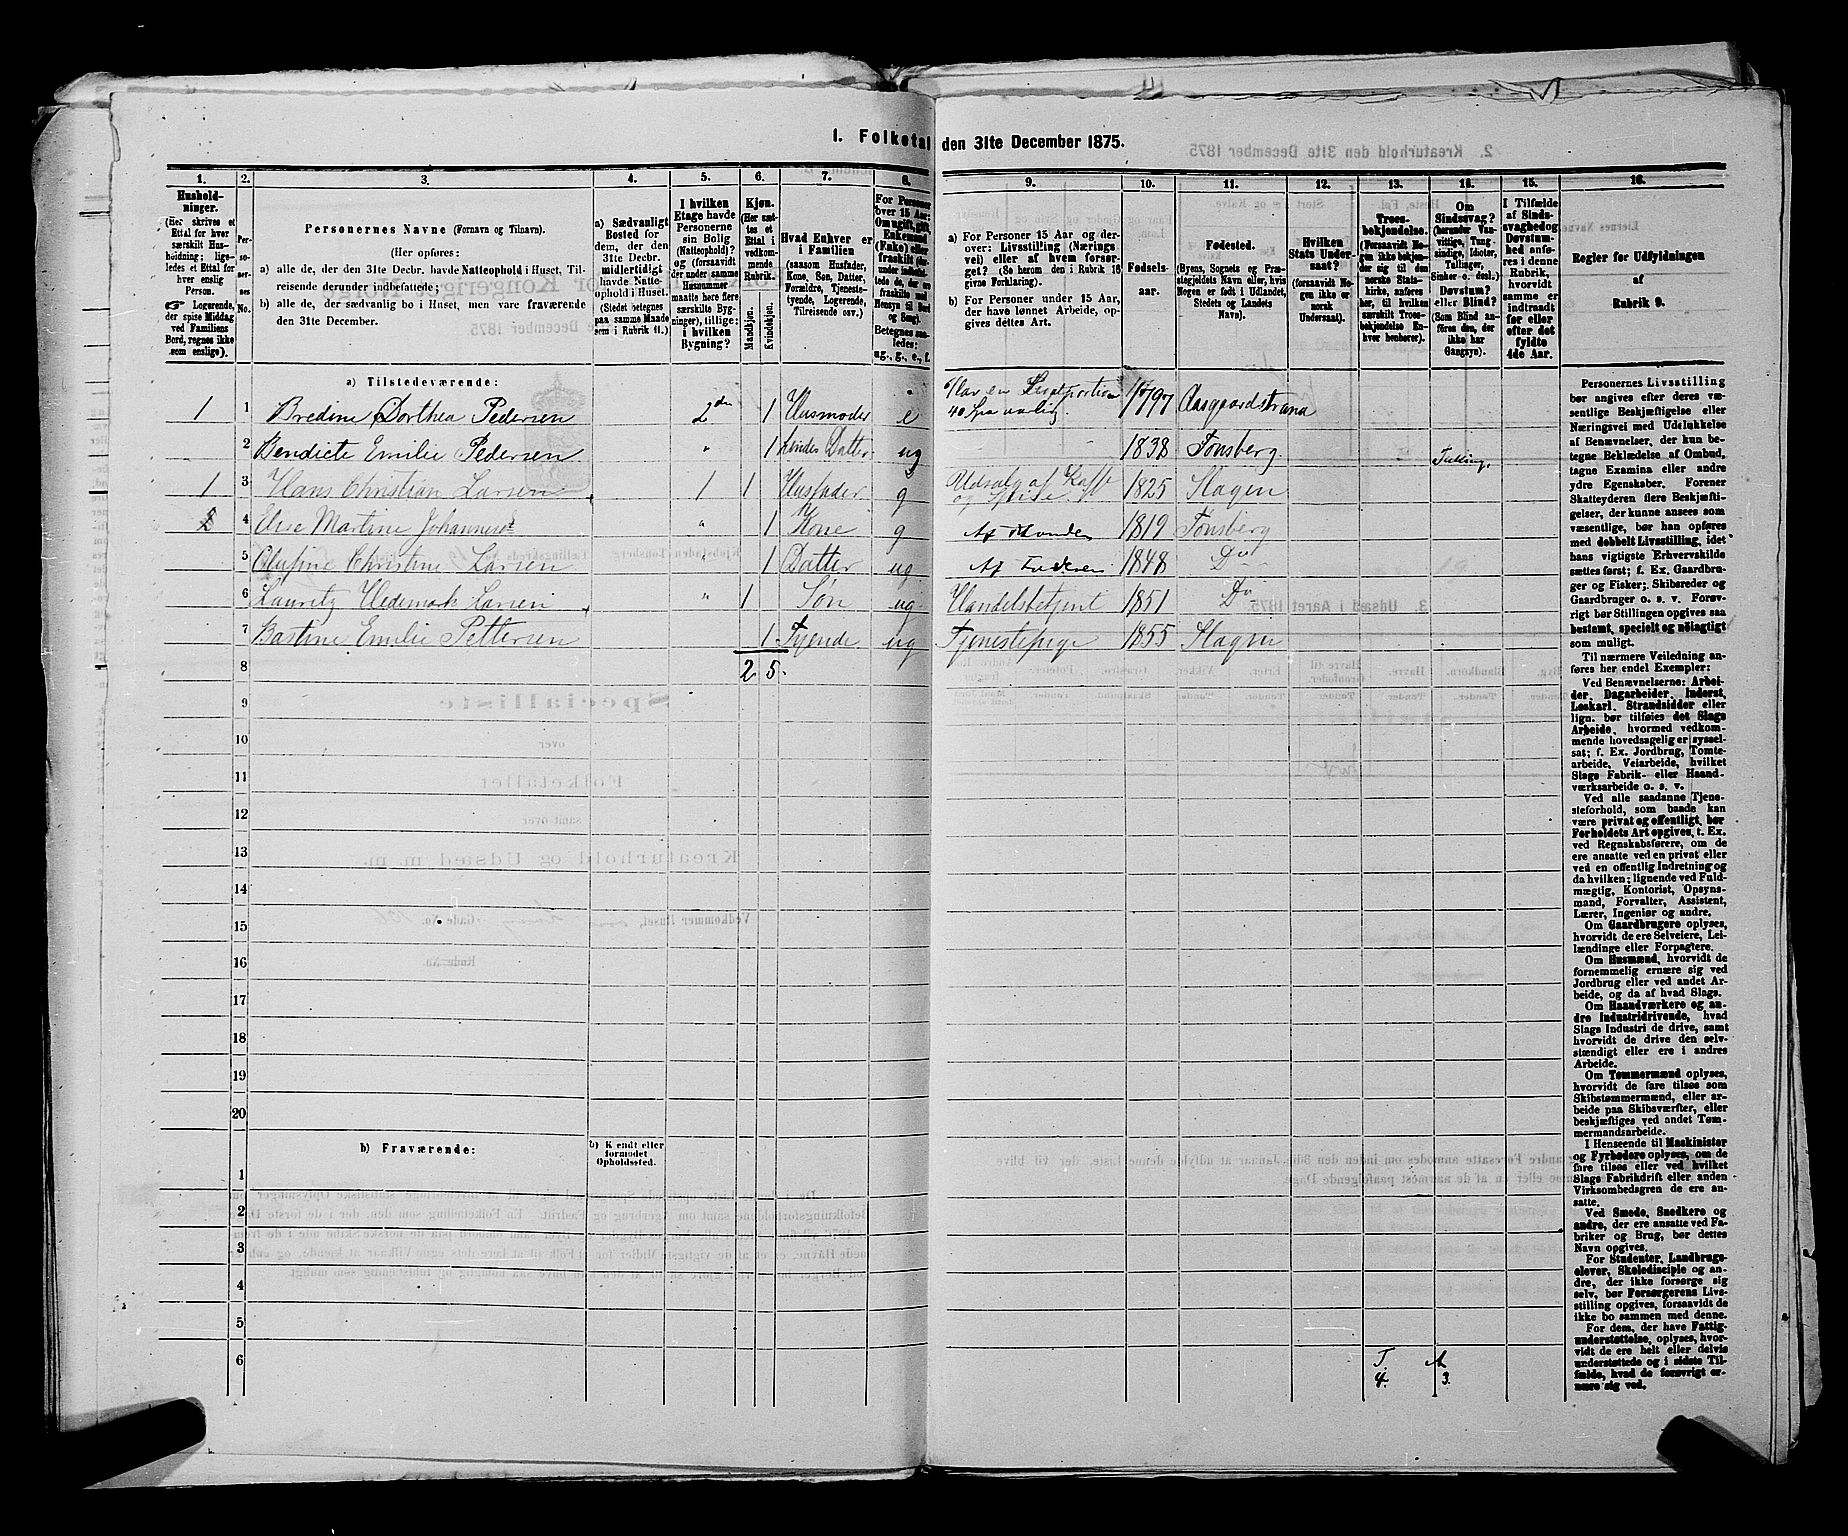 1. Folketal den 31te December 1875.
1. 2. 3. 4. 5. 6. 7. 8. 9. 10. 11. 12. 13. 14. 15. 16.
Hushold-
ninger.
(Her skrives et
Ettal for hver
særskilt Hus-
holdning; lige-
ledes et Ettal for
hver enslig
Person.
☞ Logerende,
der spise Middag
ved Familiens
Bord, regnes ikke
som enslige).
Per-
so-
ner-
nes
No.
Personernes Navne (Fornavn og Tilnavn).
(Her opføres:
a) alle de, der den 31te Decbr. havde Natteophold i Huset, Til-
reisende derunder indbefattede;
b) alle de, der sædvanlig bo i Huset, men vare fraværende
den 31te December.
a) Sædvanligt
Bosted for
dem, der den
31te Decbr.
midlertidigt
havde Natte-
ophold i Huset.
(Stedet betegnes
paa samme Maade
som i Rubrik 11.)
I hvilken
Etage havde
Personerne
sin Bolig
(Natteophold)?
og (forsaavidt
der under samme
Husnummer
maatte høre flere
særskilte Byg-
ninger), tillige:
i hvilken
Bygning?
Kjøn.
(Her sæt-
tes et
Ettal i
vedkom-
mende
Rubrik.
Mandkjøn.
Kvindekjøn.
Hvad Enhver er
i Familien
(saasom Husfader,
Kone, Søn, Datter,
Forældre, Tjeneste-
tyende, Logerende,
Tilreisende osv.)
For Personer
over 15 Aar:
Om ugift, gift,
Enkemand
(Enke) eller
fraskilt
Betegnes saa-
ledes:
ug., g., e., f.
a) For Personer 15 Aar og der-
over: Livsstilling (Nærings
vei) eller af hvem forsør-
get? (Se herom den i Rubrik 16
givne Forklaring).
b) For Personer under 15 Aar,
der have lønnet Arbeide, op-
gives dettes Art.
Fødsels-
aar.
Fødested.
(Byens, Sognets og Præ-
stegjeldets Navn eller, hvis
Nogen er født i Udlandet,
Stedets og Landets
Navn).
Hvilken
Stats Under-
saat?
(forsaavidt No-
gen ikke er
norsk
Undersaat).
Troes-
bekjendelse.
(Forsaavidt No-
gen ikke bekjen-
der sig til den
norske Stats-
kirke, anføres
her, til hvilken
særskilt Troes-
bekjendelse En-
hver henhører).
Om
Sindssvag?
(herunder Van-
vittige, Tung-
sindige, Idioter,
Tullinger,
Sinker o. desl.)
Døvstum?
eller Blind?
(Som Blind an-
føres den, der
ikke har
Gangsyn).
I Tilfælde
af Sinds-
svaghed og
Døvstum-
hed anfø-
res i denne
Rubrik,
hvorvidt
samme er
indtraadt
før eller
efter det
fyldte
4de Aar.
Regler for Udfyldningen
af
Rubrik 9.
a) Tilstedeværende:
1 1 Bredine Dorthea Pedersen 2den 1 Husmoder e Har en 40 Spd aarlig. 1797 Aasgaardstrand
2 Bendicte Emilie Pedersen " 1 hendes Datter ug 1838 Tønsberg Tulling.
1 3 Hans Christian Larsen 1 1 Husfader g Udsalg af Kaffe og 1825 Slagen
4 Else Martine Johannesd " 1 Kone g Af Manden 1819 Tønsberg
5 Olufine Christine Larsen " 1 Datter ug Af Faderen 1848 Do
6 Lauritz Hedemark Larsen " 1 Søn ug Handelsbetjent 1851 Do
7 Bastine Emilie Pettersen 1 Tjende ug Tjenestepige 1855 Slagen
8 2 5.
9
10
11
12
13
14
15
16
17
18
19
20
b) Fraværende:
b) Kjendt eller
formodet
Opholdssted.
1
2
3
4
5
6
T. A
4. 3.
Personernes Livsstilling
bør angives efter deres væ-
sentlige Beskjæftigelse eller
Næringsvei med Udelukkelse
af Benævnelser, der kun be-
tegne Beklædelse af Ombud,
tagne Examina eller andre
ydre Egenskaber. Forener
Skatteyderen flere Beskjæfti-
gelser, der kunne ansees som
væsentlige, bør han opføres
med dobbelt Livsstilling, idet
hans vigtigste Erhvervskilde
sættes først; f. Ex. Gaardbru-
ger og Fisker; Skibsreder og
Gaardbruger o. s. v. Forøv-
rigt bør Stillingen opgives saa
bestemt, specielt og nøiagtigt
som muligt.
Til nærmere Veiledning an-
føres her endel Exempler:
Ved Benævnelserne: Arbei-
der, Dagarbeider, Inderst,
Løskarl, Strandsidder eller
lign. bør tilføies det Slags
Arbeide, hvormed vedkom-
mende hovedsagelig er syssel-
sat; f. Ex. Jordbrug, Tomte-
arbeide, Veiarbeide, hvilket
Slags Fabrik- eller Haand-
værksarbeide o. s. v.
Ved alle saadanne Tjene-
steforhold, som baade kan
være privat og offentligt, bør
Forholdets Art opgives, t. Ex.
ved Regnskabsførere, om de
ere ansatte ved en privat eller
ved en offentlig Indretning og
da hvilken; lignende ved Fuld-
mægtig, Kontorist, Opsyns-
mand, Forvalter, Assistent,
Lærer, Ingeniør og andre.
Om Gaardbrugere oplyses,
hvorvidt de ere Selveiere, Lei-
lændinge eller Forpagtere.
Om Husmænd, hvorvidt de
fornemmelig ernære sig ved
Jordbrug eller ved andet Ar-
beide, og da af hvad Slags.
Om Haandværkere og an-
dre Industridrivende, hvad
Slags Industri de drive, samt
hvorvidt de drive den selv-
stændigt eller ere i andres
Arbeide.
Om Tømmermænd oplyses,
hvorvidt de fare tilsøs som
Skibstømmermænd, eller ar-
beide paa Skibsværfter, eller
beskjæftiges ved andet Tøm-
mermandsarbeide.
I Henseende til Maskinister
og Fyrbødere oplyses, om de
fare tilsøs eller ved hvilket
Slags Fabrikdrift eller anden
Virksomhedsgren de ere an-
satte.
Ved Smede, Snedkere og
andre, der ere ansatte ved Fa-
briker og Brug, bør dettes
Navn opgives.
For Studenter, Landbrugs-
elever, Skoledisciple og an-
dre, der ikke forsørge sig
selv, bør Forsørgerens Livs-
stilling opgives, forsaavidt de
ikke bo sammen med denne.
For dem, der have Fattig-
understøttelse, oplyses, hvor-
vidt de ere helt eller delvis
understøttede og i sidste Til-
fælde, hvad de forøvrigt er-
nære sig ved.